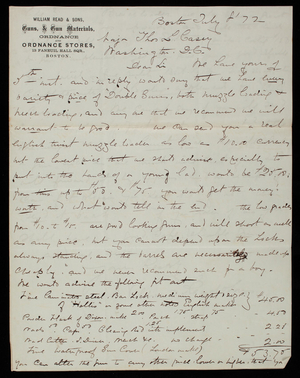 WILLIAM READ & SONS,
Guns, & Gun Materials,
ORDNANCE
AND
ORDNANCE STORES,
13 FANEUIL HALL SQR.,
BOSTON.
Boston July 8' 72
Major Thos. L. Casey
Washington D.C.
Dear Sir We have yours of
inst, and in reply would say that we have every
variety & price of Double Guns, both Muzzle loading &
Breech loading, and any one that we recommend we will
warrant to be good We can send you a real
English twist muzzle loader as low as currency
but the lowest price that we should advise, especially to
put into the hands of a young lad, would be $25.00,
from this up to you get the money's
worth, and what wont tell in the end the low priced
from to are good looking guns, and will shoot as well
as any price, but you cannot depend upon the Locks
always standing, and the barrels are necessarily made up
cheaply and we never recommend such for a boy.
We would advise the following fit out
Fine steel Bar Lock, made
45.00
Powder Flask of Pouch strap
4.50
Caps Cleaning Rod with implements
2.25
Wad Cutter & Dimes no charge
2.00
Fine Waterproof Gun Cover
You can alter the gun to any other price lower or higher